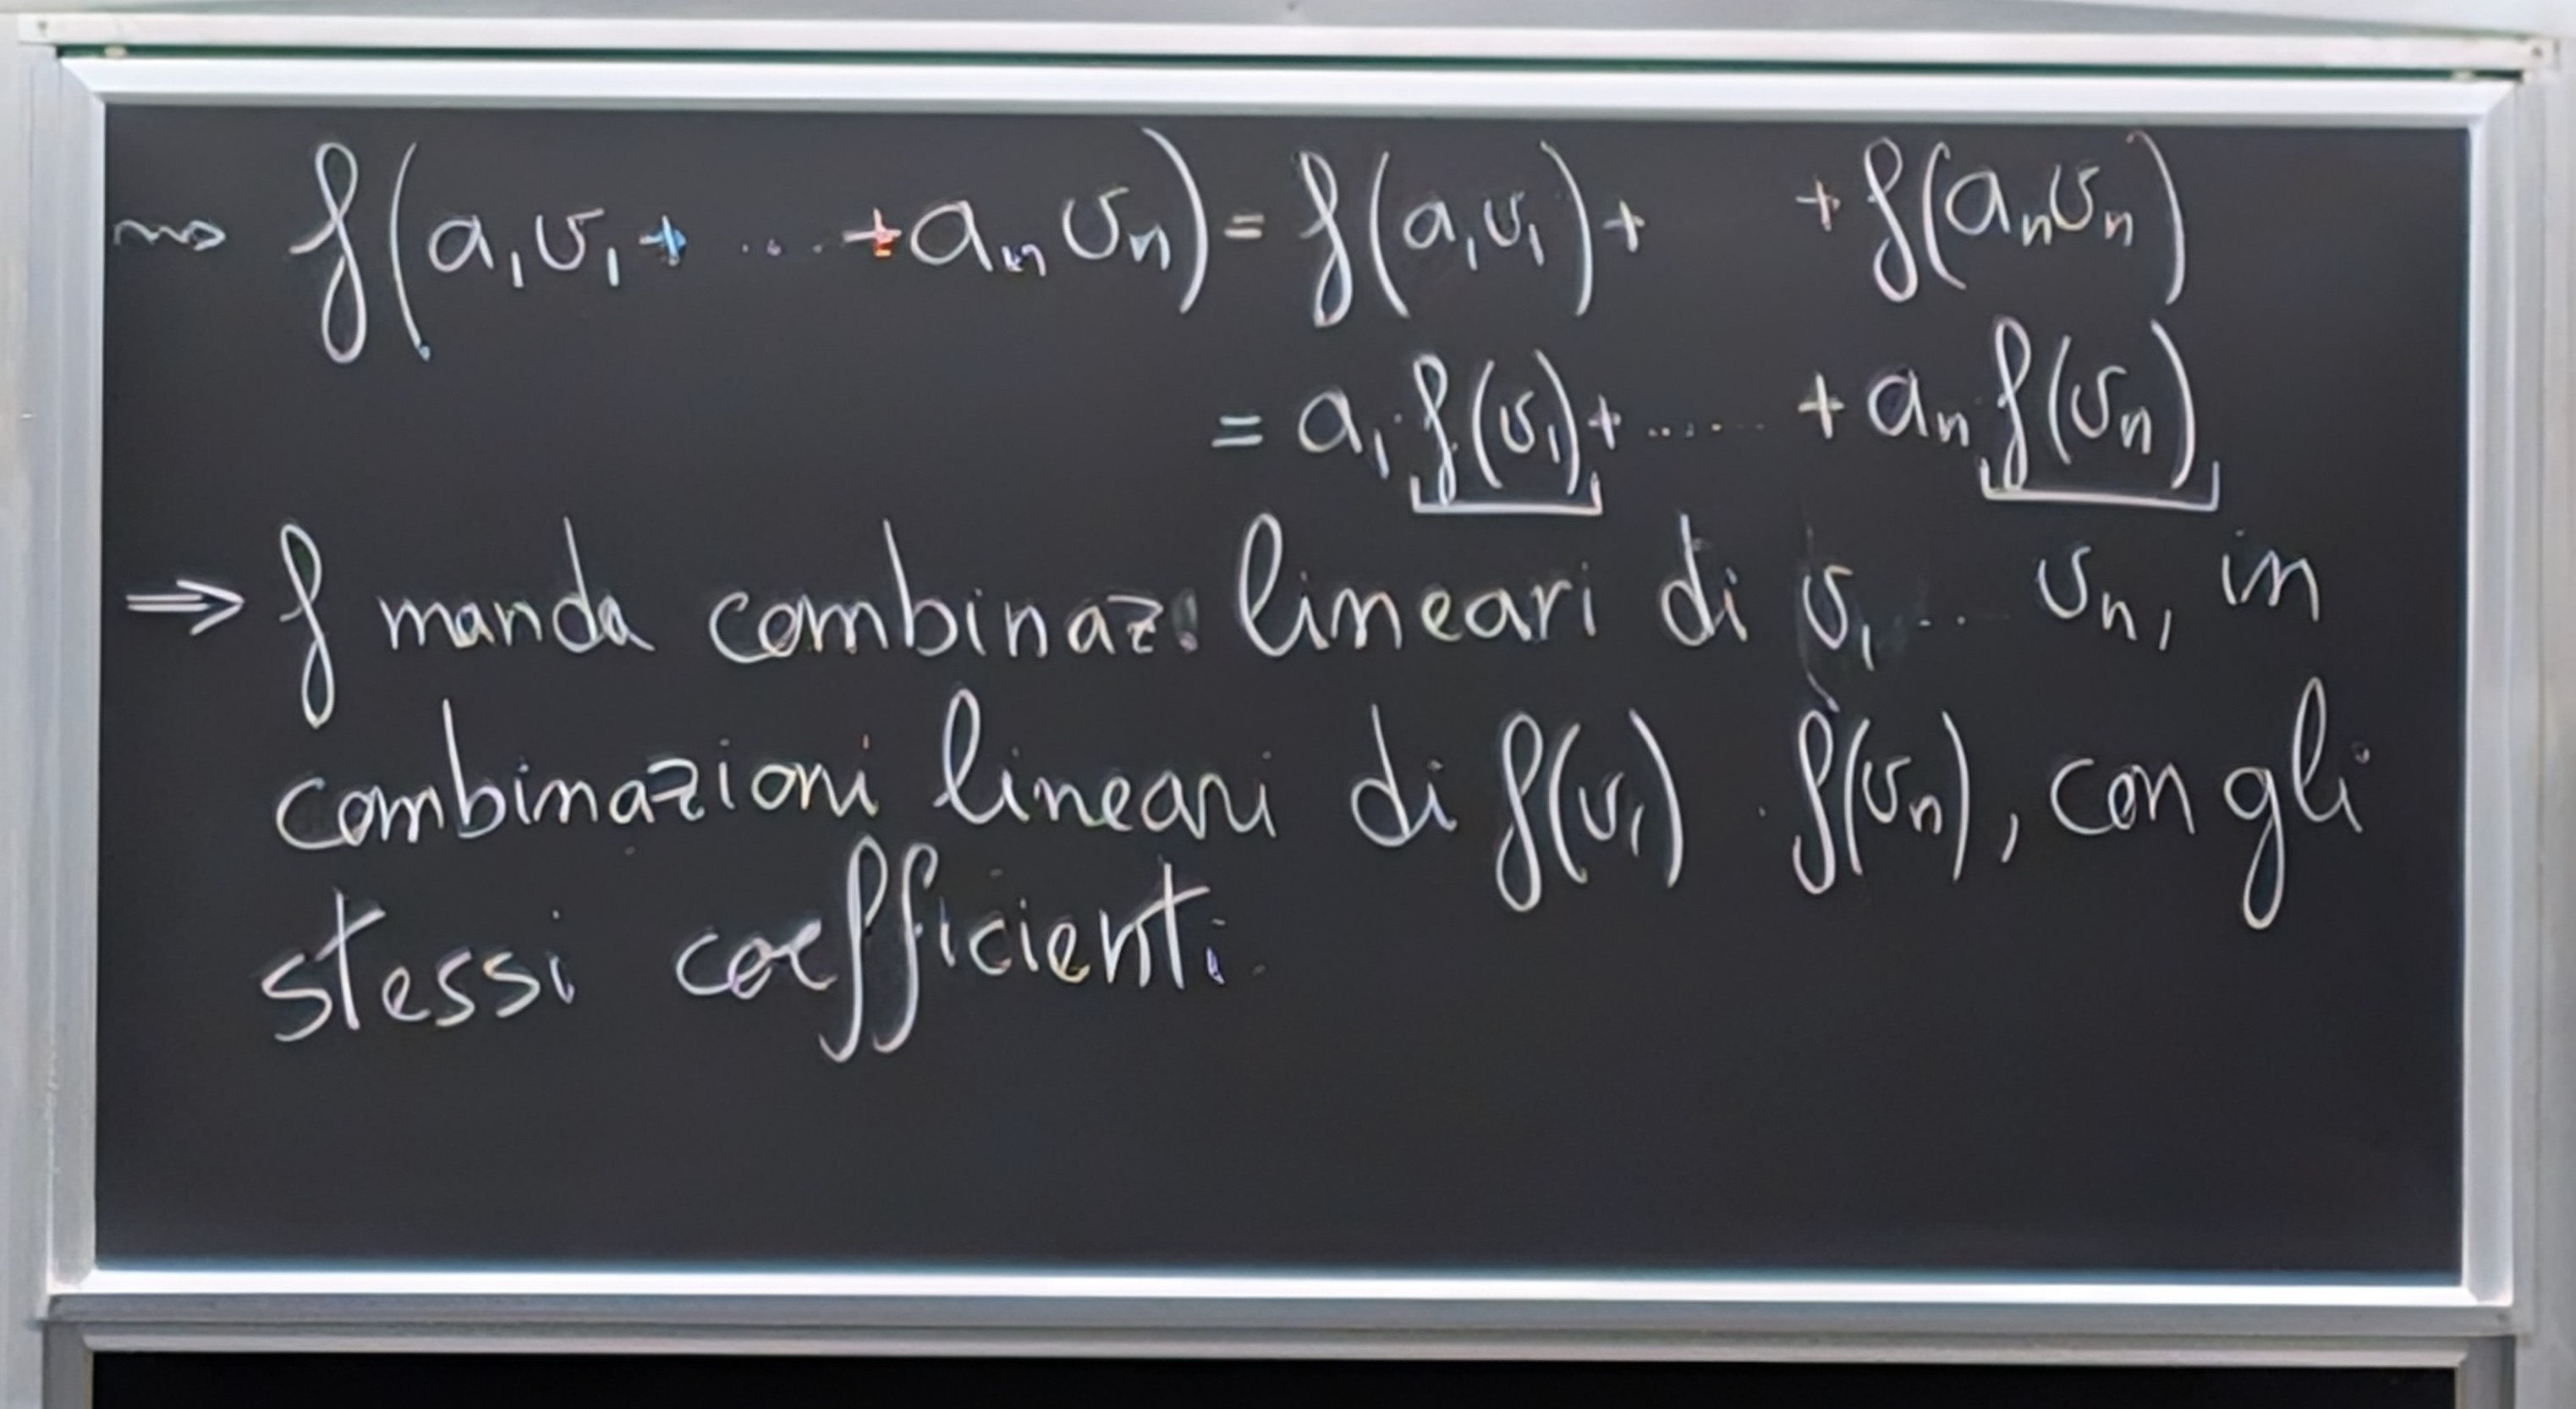 ⇝ f(a₁v₁ + ... + aₙvₙ) = f(a₁v₁) + + f(aₙvₙ)
= a₁f(v₁) + ...... + aₙf(vₙ)
⇒ f manda combinaz. lineari di v₁ ... vₙ, in
combinazioni lineari di f(v₁) . f(vₙ), con gli
stessi coefficienti.